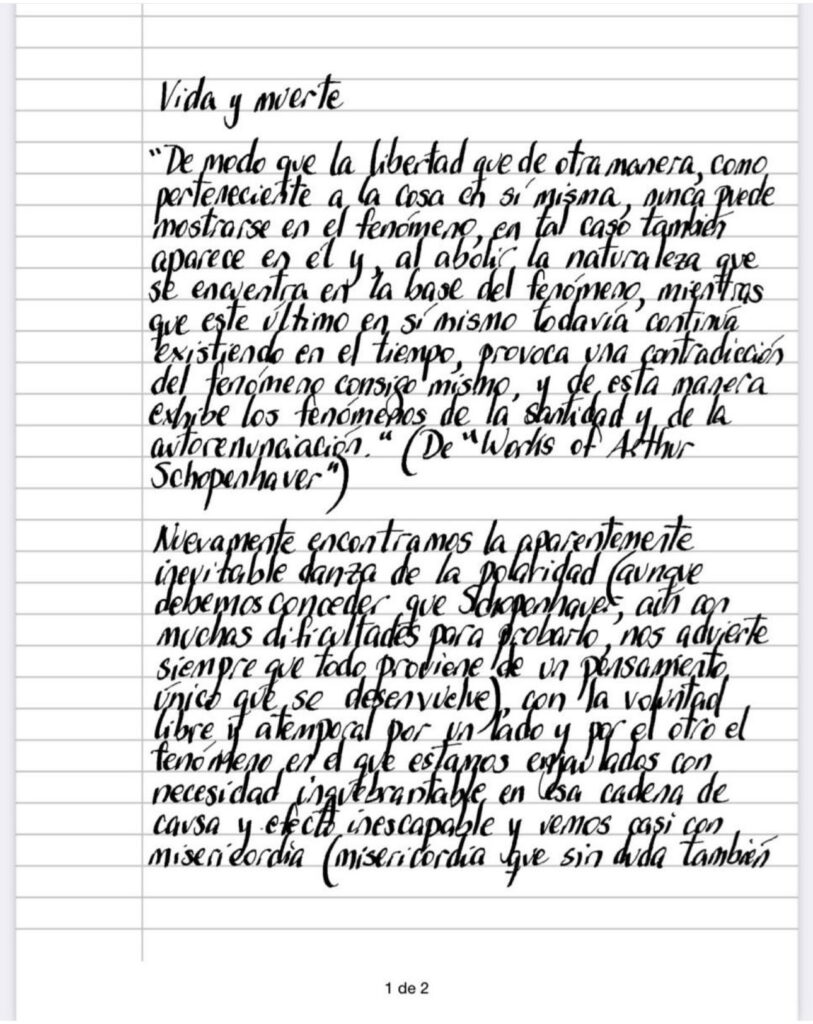 Vida y muerte
"De modo que la libertad que de otra manera, como
perteneciente a la cosa en sí misma, nunca puede
mostrarse en el fenómeno, en tal caso también
aparece en él y, al abolir la naturaleza que
se encuentra en la base del fenómeno, mientras
que este último en sí mismo todavía continúa
existiendo en el tiempo, provoca una contradicción
del fenómeno consigo mismo, y de esta manera
exhibe los fenómenos de la santidad y de la
autorenunciación." (De "Works of Arthur
Schopenhauer")
Nuevamente encontramos la aparentemente
inevitable danza de la polaridad (aunque
debemos conceder que Schopenhauer, aún con
muchas dificultades para probarlo, nos advierte
siempre que todo proviene de un pensamiento
único que se desenvuelve), con la voluntad
libre y atemporal por un lado y por el otro el
fenómeno en el que estamos enjaulados con
necesidad inquebrantable en esa cadena de
causa y efecto inescapable y vemos casi con
misericordia (misericordia que sin duda también
1 de 2